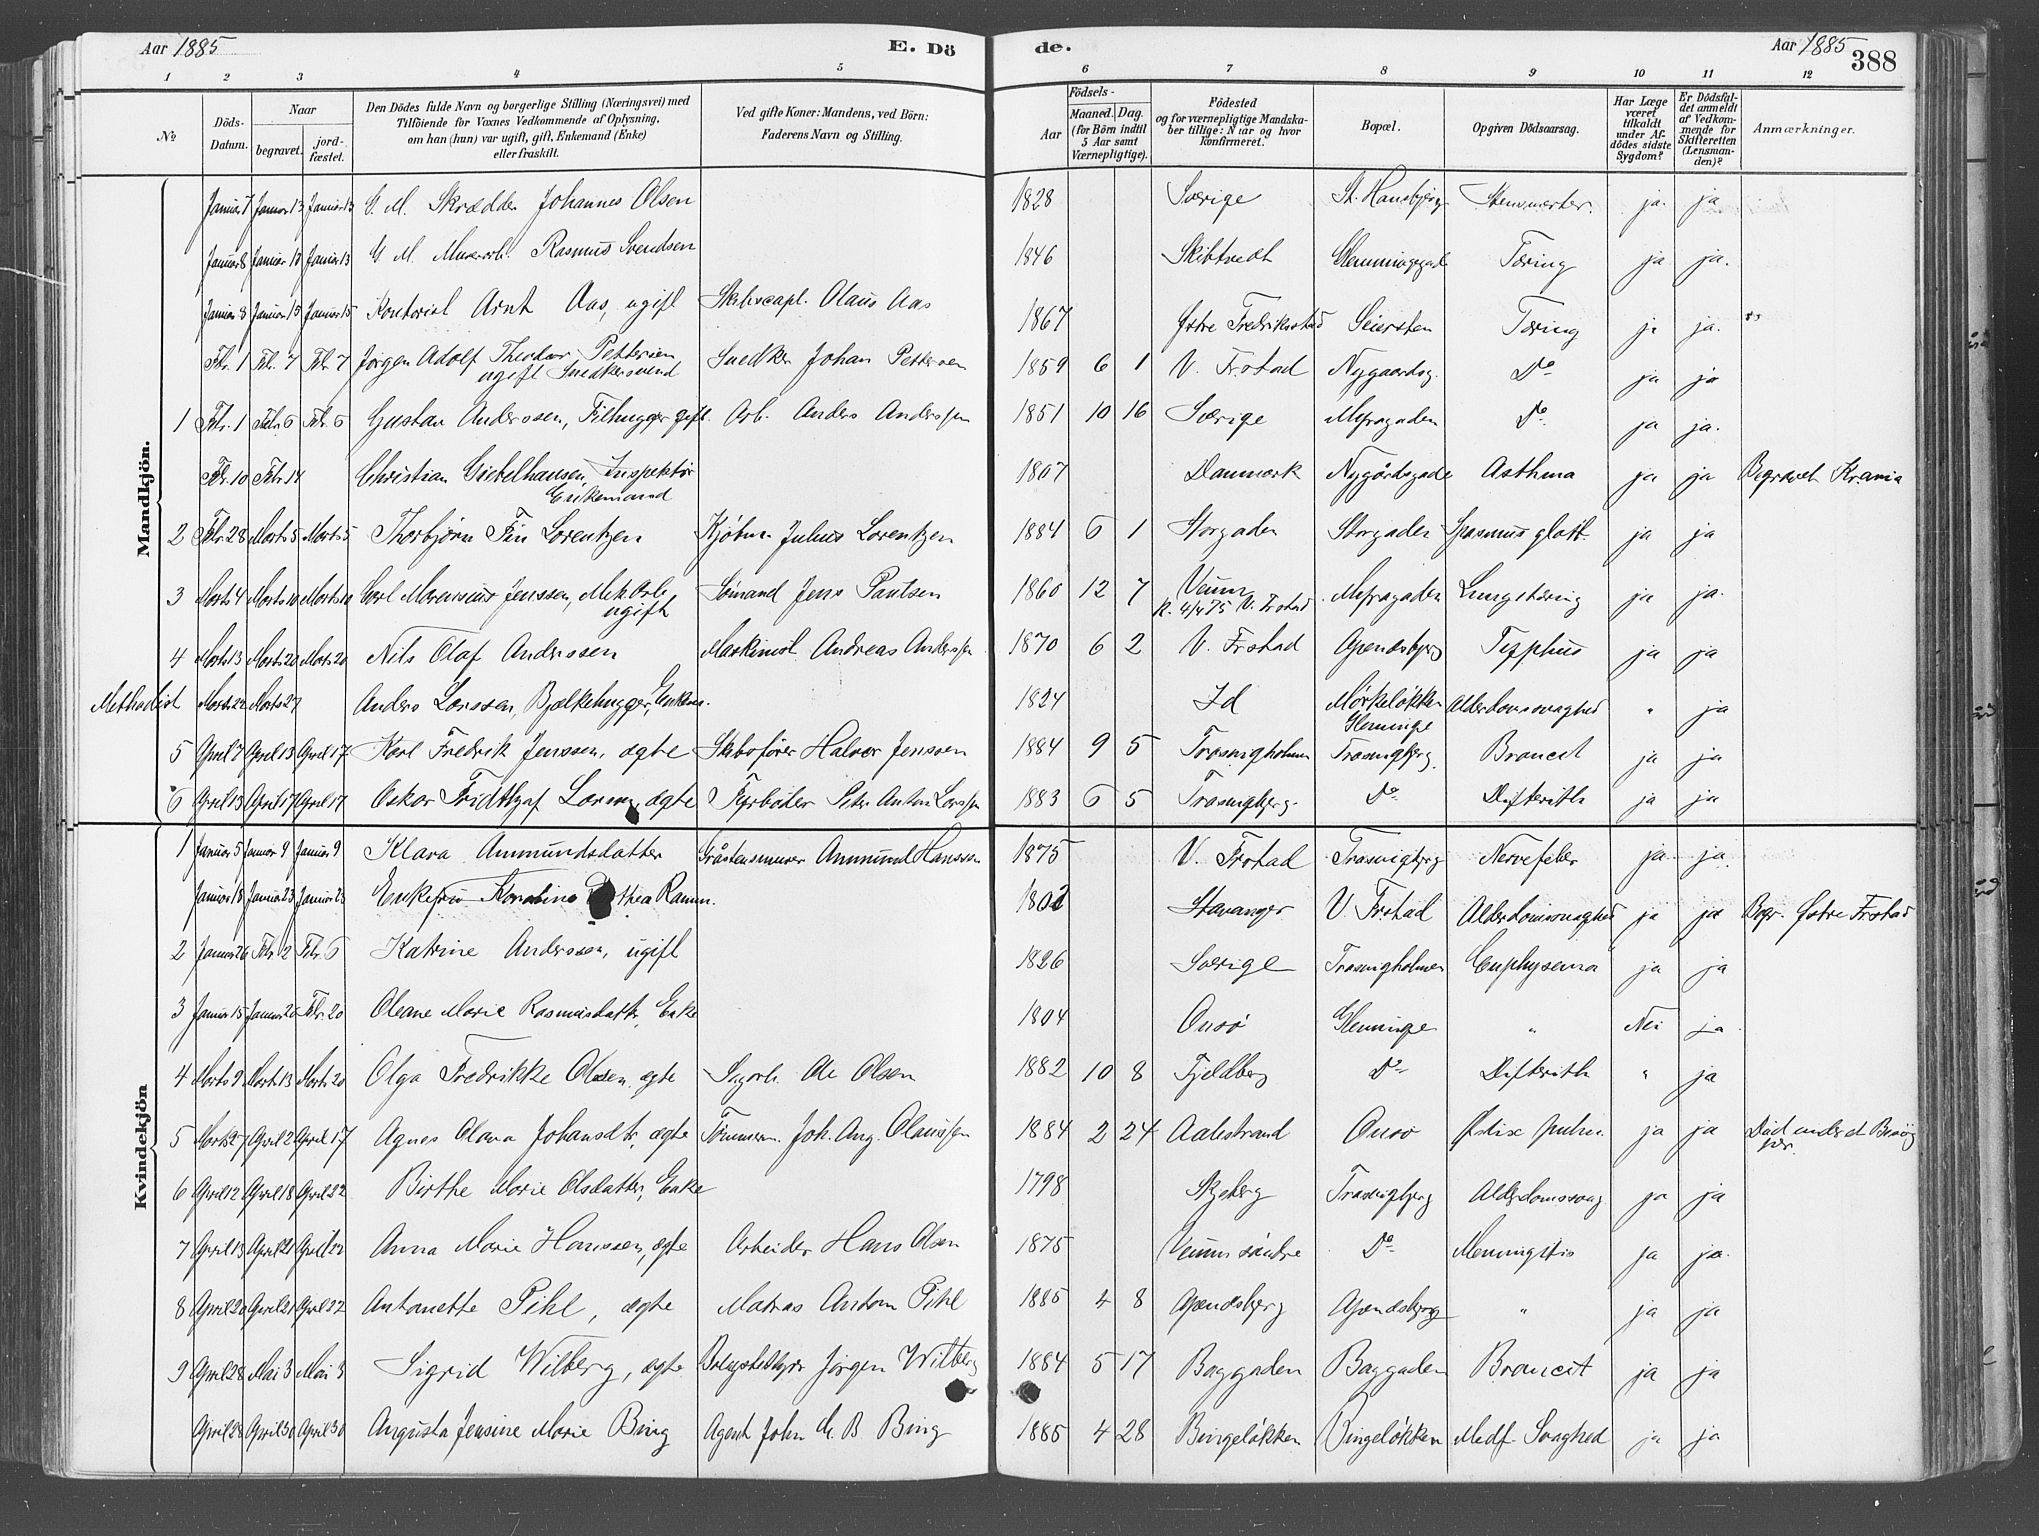 Aar 1885
E. Dö
de.
Aar 1885
388
1 2 3 4 5 6 7 8 9 10 11 12
№
Döds-Datum.
Naar
begravet.
jord-fæstet.
Den Dödes fulde Navn og borgerlige Stilling (Næringsvei) med
Tilföiende for Voxnes Vedkommende af Oplysning,
om han (hun) var ugift, gift, Enkemand (Enke)
eller fraskilt.
Ved gifte Koner: Mandens, ved Börn:
Faderens Navn og Stilling.
Födsels-
Aar
Maaned. Dag.
(for Börn indtil
5 Aar samt
Værnepligtige).
Födested
og for værnepligtige Mandska-
ber tillige: Naar og hvor
konfirmeret.
Bopæl.
Opgiven Dödsaarsag.
Har Læge
været
tilkaldt
under Af-
dödes sidste
Sygdom?
Er Dödsfal-
det anmeldt
af Vedkom-
mende for
Skifteretten
(Lensman-
den)?
Anmærkninger.
Mandkjön.
Januar 7 Januar 13 Januar 13 G. M. Skrædder Johannes Olsen 1828 Sverige St. Hansbjerg ja ja
Januar 8 Januar 13 Januar 13 G. M. Murerarb. Rasmus Svendsen 1846 Skibtvedt Glemmingegad Tæring ja ja.
Januar 8 Januar 15 Januar 15 Kontorist Arnt Aas, ugift Skibscapt. Olaus Aas 1867 Østre Fredrikstad Seiersten Tæring ja ja.
Febr. 1 Febr. 7 Febr. 7 Jørgen Adolf Theodor Pettersen Snedker Johan Pettersen 1859 6 1 V. Frstad Nygaardsg. Do ja ja
ugift Snedkersvend
1 Febr. 1 Febr. 6 Febr. 6 Gustav Anderssen, Filhugger gift. Arb. Anders Anderssen 1851 10 16 Sverige Do ja ja.
Febr. 10 Febr. 14 Christian Giebelhausen, Inspektör 1807 Danmark Nygårdsgade Asthma ja ja Begravet Krania
Enkemand
2 Febr. 28 Marts 5 Marts 5 Thorbjørn Fin Lorentzen Kjøbm. Julius Lorentzen 1884 6 1 Storgaden Storgaden Spasmus glott. ja ja
3 Marts 4 Marts 10 Marts 10 Carl Marensius Jenssen, Mek. Arb. Sømand Jens Paulsen 1860 12 7 Veum Lungetæring ja ja.
ugift K. 4/4 75 V. Frstad
4 Marts 13 Marts 20 Marts 20 Nils Olaf Anderssen Maskinist Andreas Anderssen 1870 6 2 V. Frstad Apenæsbjerg Typhus ja ja
Methodist Marts 22 Marts 27 Anders Larssen, Bjælkehugger, Enkem. 1824 Id Mørkeløkken Alderdomssvaghed " ja
Glemminge
5 April 7 April 13 April 17 Karl Fredrik Jenssen, ægte Skibsfører Halvor Jenssen 1884 9 5 Trosvigholmen Trosvigbjerg. Broncit ja ja
6 April 13 April 17 April 17 Oskar Fridthjof Larsen, ægte Fyrbøter Peter Anton Larssen 1883 6 5 Trosvigbjerg. Do Difterith ja ja
Kvindekjön
1 Januar 5 Januar 9 Januar 9 Klara Ammundsdatter Gråstensmurer Ammund Hanssen 1875 V. Frstad Trosvigbjerg Nervefeber ja ja
Januar 18 Januar 23 Januar 23 Enkefru Ramm. 1802 Stavanger V. Frstad Alderdomssvaghed ja ja Begr. Østre Frstad
2 Januar 26 Febr. 2 Febr. 6 Katrine Anderssen, ugift 1826 Sverige Trosvigholmen Emphysema ja ja
3 Januar 15 Januar 20 Febr. 20 Oleane Marie Rasmusdatter, Enke 1804 Onsö Glemminge " Nei ja
4 Marts 9 Marts 13 Marts 20 Olga Fredrikke Olssen, ægte Sagarb. Ole Olsen 1882 10 8 Fjeldberg Do Difterith " ja
5 Marts 27 April 2 April 17 Agnes Olava Johansdtr, ægte Tömmerm. Joh. Aug. Olaussen 1884 2 24 Aalestrand Onsø ja ja Död under et Besög
her.
6 April 12 April 18 April 22 Birthe Marie Olsdatter, Enke 1798 Skjeberg Trosvigbjerg Alderdomssvag ja ja
7 April 13 April 21 April 22 Anna Marie Hanssen, ægte Arbeider Hans Olsen 1875 Veum søndre Do Menningitis ja ja.
8 April 20 April 21 April 22 Antonette Pihl, ægte Matros Anton Pihl 1885 4 8 Apenæsbjerg Apenæsbjerg " ja ja
9 April 28 Mai 3 Mai 3 Sigrid Wilberg, ægte Jørgen Wilberg 1884 5 17 Baggaden Baggaden Broncit ja ja
April 28 April 30 April 30 Augusta Jensine Marie Bing Agent John M. B Bing 1885 4 28 Bingeløkken Bingeløkken Medf. Svaghed ja ja